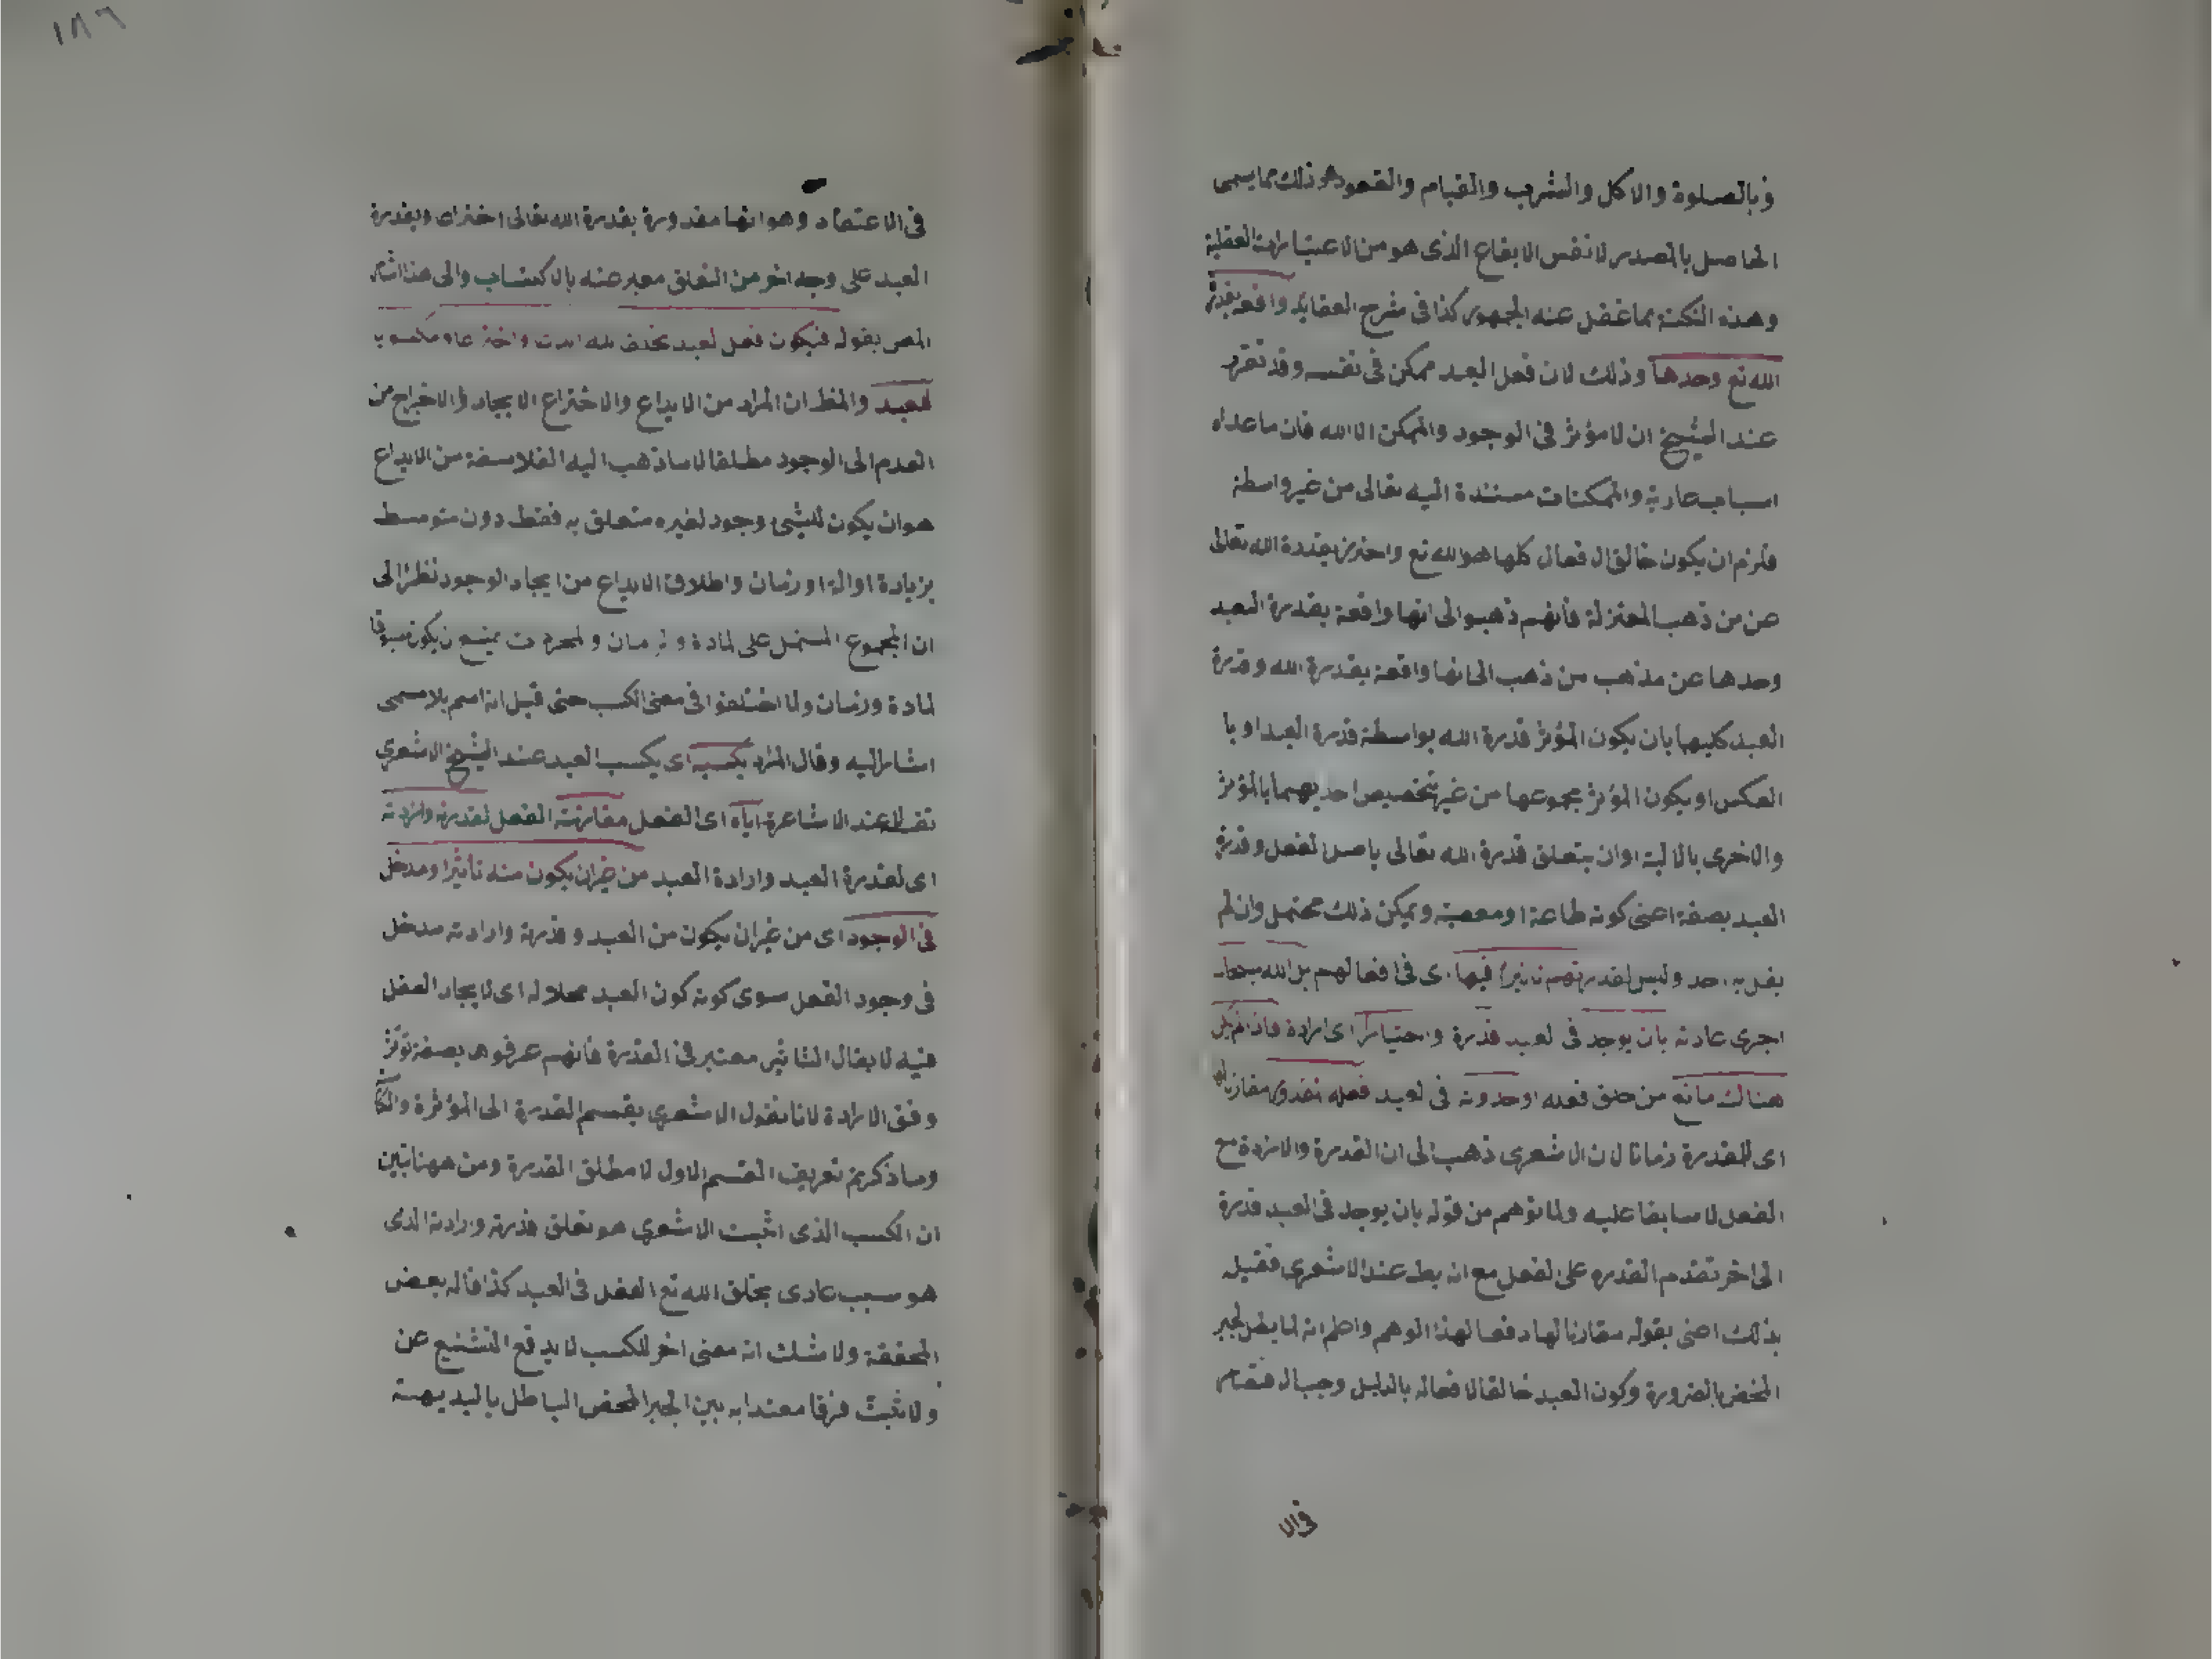 وبالصلوة والاكل والشرب والقيام والقعود وذلك مما يسمى
الحاصل بالمصدر لا نفس الايقاع الذى هو من الاعتبارات العقلية
وهذه النكتة مما غفل عنه الجمهور كذا فى شرح العقايد واقعة بقدرة
الله تع وحدها وذلك لان فعل العبد ممكن فى نفسه وقد تقرر
عند الشيخ ان لا مؤثر فى الوجود والممكن الا الله فان ما عداه
اسباب عادية والممكنات مستندة اليه تعالى من غير واسطة
فلزم ان يكون خالق الافعال كلها هو الله تع واحترز بقدرة الله تعالى
عن من ذهب المعتزلة فانهم ذهبوا الى انها واقعة بقدرة العبد
وحدها عن مذهب من ذهب الى انها واقعة بقدرة الله وقدرة
العبد كليهما بان يكون المؤثر قدرة الله بواسطة قدرة العبد او با
العكس او يكون المؤثر مجموعها من غير تخصيص احديهما بالمؤثر
والاخرى بالالية او ان يتعلق قدرة الله تعالى باصل الفعل وقدرة
العبد بصفة اعنى كونه طاعة او معصية ويمكن ذلك محتمل وان لم
يقل به احد وليس لقدرتهم تاثيرا فيها اى فى افعالهم بل الله سبحانه
اجرى عادته بان يوجد فى العبد قدرة واختيارا اى ارادة فاذا لم يكن
هناك مانع من خلق فعله اوحدوثه فى العبد فعله المقدور مقارنا لها
اى للقدرة زمانا لان الاشعرى ذهب الى ان القدرة والارادة مع
الفعل لا سابقا عليه ولما توهم من قوله بان يوجد فى العبد قدرة
الى اخر تقدم القدرة على الفعل مع انه بط عند الاشعرى فقيل
بذلك اعنى بقوله مقارنا لها دفعا لهذا الوهم واعلم انه لما بطل الجبر
المحض بالضرورة وكون العبد خالقا لافعاله بالدليل وجب الاقتصار
فى الا
١٨٦
فى الاعتقاد وهو انها مقدورة بقدرة الله تعالى اختراعا وبقدرة
العبد على وجه اخر من التعلق معبر عنه بالاكتساب والى هذا اشار
المص بقوله فيكون فعل العبد مخلوقا لله ابداعا واختراعا ومكسوبا
للعبد والمظ ان المراد من الابداع والاختراع الايجاد والاخراج من
العدم الى الوجود مطلقا لا ما ذهب اليه الفلاسفة من الابداع
هو ان يكون للشئ وجود لغيره متعلق به فقط دون متوسط
بزيادة او الة او زمان واطلاق الابداع من ايجاد الوجود نظرا الى
ان المجموع المشتمل على المادة والزمان والمجردات يمتنع ان يكون مسبوقا
لمادة وزمان ولما اختلفوا فى معنى الكسب حتى قيل انه اسم بلا مسمى
اشار اليه وقال المراد بكسبه اى يكسب العبد عند الشيخ الاشعرى
عند الاشاعرة اياه اى الفعل مقارنة الفعل لقدرته وارادته
اى لقدرة العبد وارادة العبد من غير ان يكون منه تأثيرا ومدخل
فى الوجود اى من غير ان يكون من العبد وقدرته وارادته مدخل
فى وجود الفعل سوى كونه كون العبد محلا له اى لايجاد الفعل
فيه لا يقال التاثير معتبر فى القدرة فانهم عرفوها بصفة تؤثر
وفق الارادة لانا نقول الاشعرى يقسم القدرة الى المؤثرة والكا
وما ذكرتم تعريف القسم الاول لا مطلق القدرة ومن ههنا تبين
ان الكسب الذى اثبت الاشعرى هو تعلق قدرته وارادته الذى
هو سبب عادى بخلق الله تع الفعل فى العبد كذا قاله بعض
المحققة ولا شك انه معنى اخر للكسب لا يدفع التشنيع عن
ولا يثبت فرقا معتدا به بين الجبر المحض الباطل بالبديهة